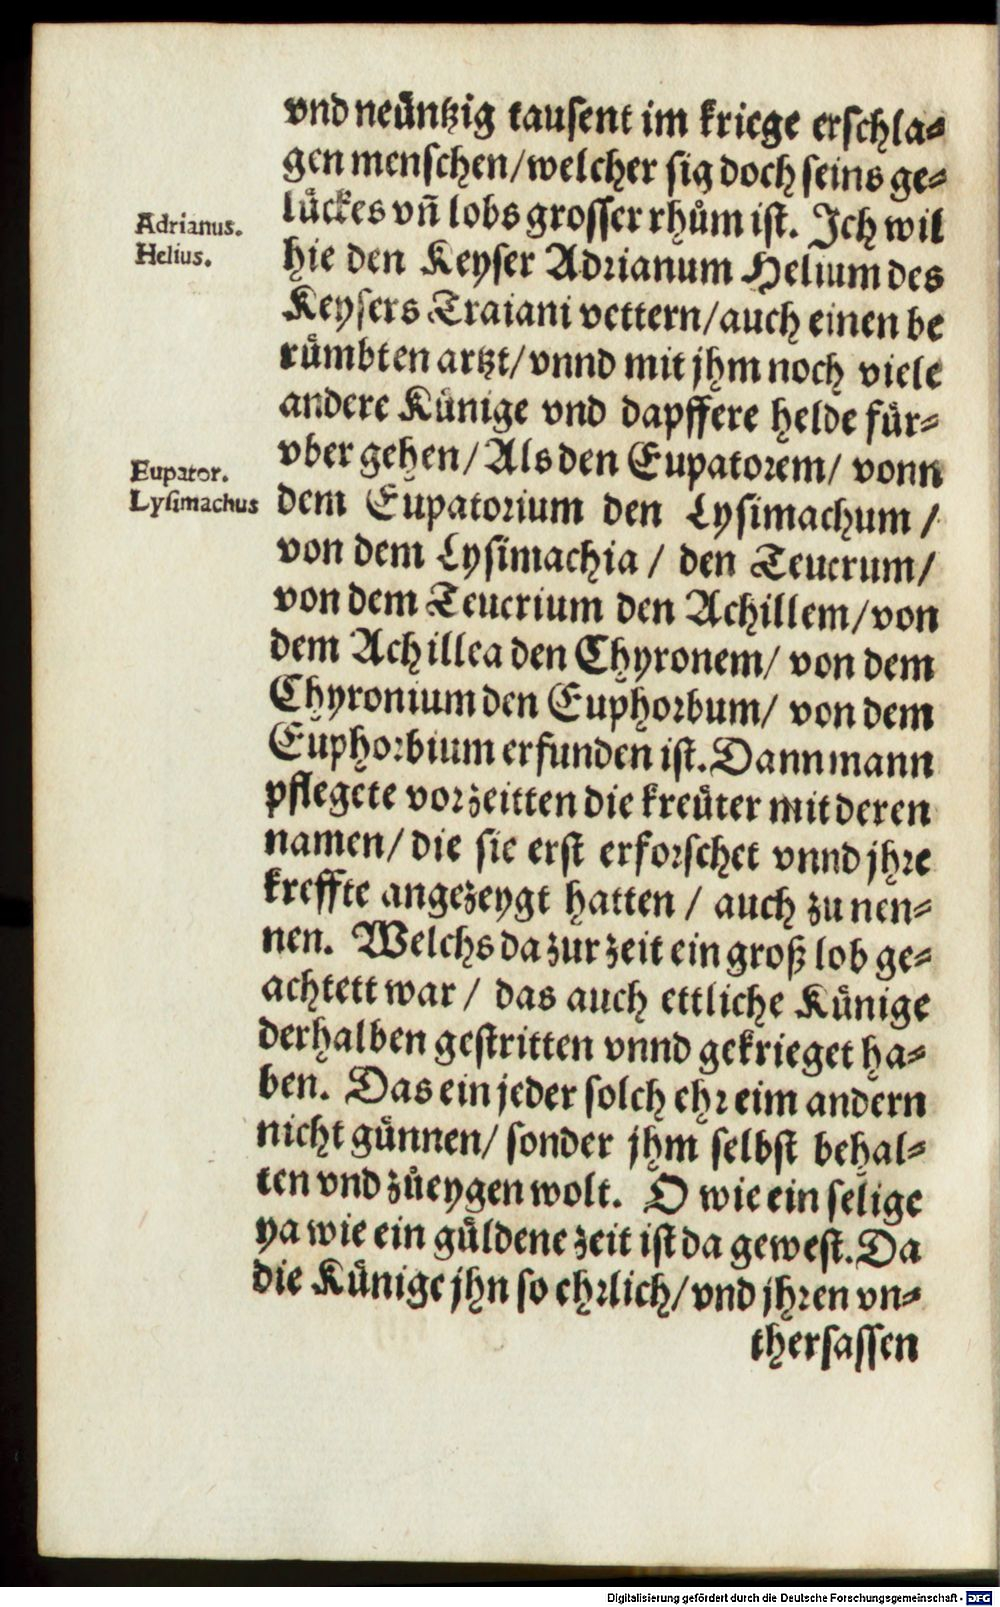 vnd neüntzig tausent im kriege erschla⸗
gen menschen/welcher sig doch seins ge⸗
lückes vñ lobs grosser rhům ist. Ich wil
Adrianus.
Helius.
hie den Keyser Adrianum Helium des
Keysers Traiani vettern/auch einen be
rümbten artzt/vnnd mit jhm noch viele
andere Künige vnd dapffere helde für⸗
vber gehen/Als den Eupatorem/ vonn
Eupator.
Lysimachus
dem Eupatorium den Lysimachum /
von dem Lysimachia / den Teucrum/
von dem Teucrium den Achillem/von
dem Achillea den Chyronem/ von dem
Chyronium den Euphorbum/ von dem
Euphorbium erfunden ist. Dann mann
pflegete vorzeitten die kreüter mit deren
namen/ die sie erst erforschet vnnd jhre
kreffte angezeygt hatten / auch zu nen⸗
nen. Welchs da zur zeit ein groß lob ge⸗
achtett war / das auch ettliche Künige
derhalben gestritten vnnd gekrieget ha⸗
ben. Das ein jeder solch ehr eim andern
nicht günnen/ sonder jhm selbst behal⸗
ten vnd zůeygen wolt. O wie ein selige
ya wie ein güldene zeit ist da gewest. Da
die Künige jhn so ehrlich/ vnd jhren vn⸗
thersassen
Digitalisierung gefördert durch die Deutsche Forschungsgemeinschaft - DFG